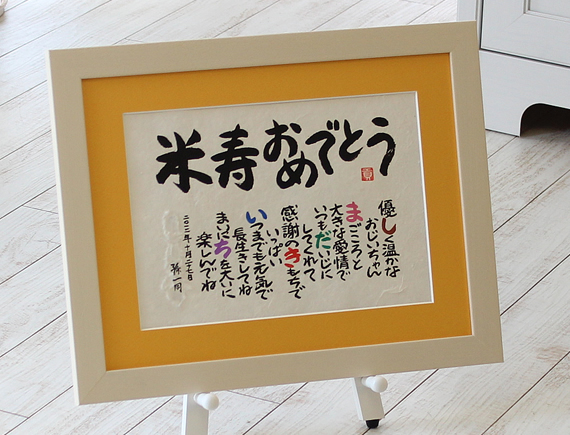 米寿おめでとう
優しく温かな
おじいちゃん
まごころと
大きな愛情で
いつもだいじに
してくれて
感謝のきもちで
いっぱい
いつまでも元気で
長生きしてね
まいにちを大いに
楽しんでね
孫一同